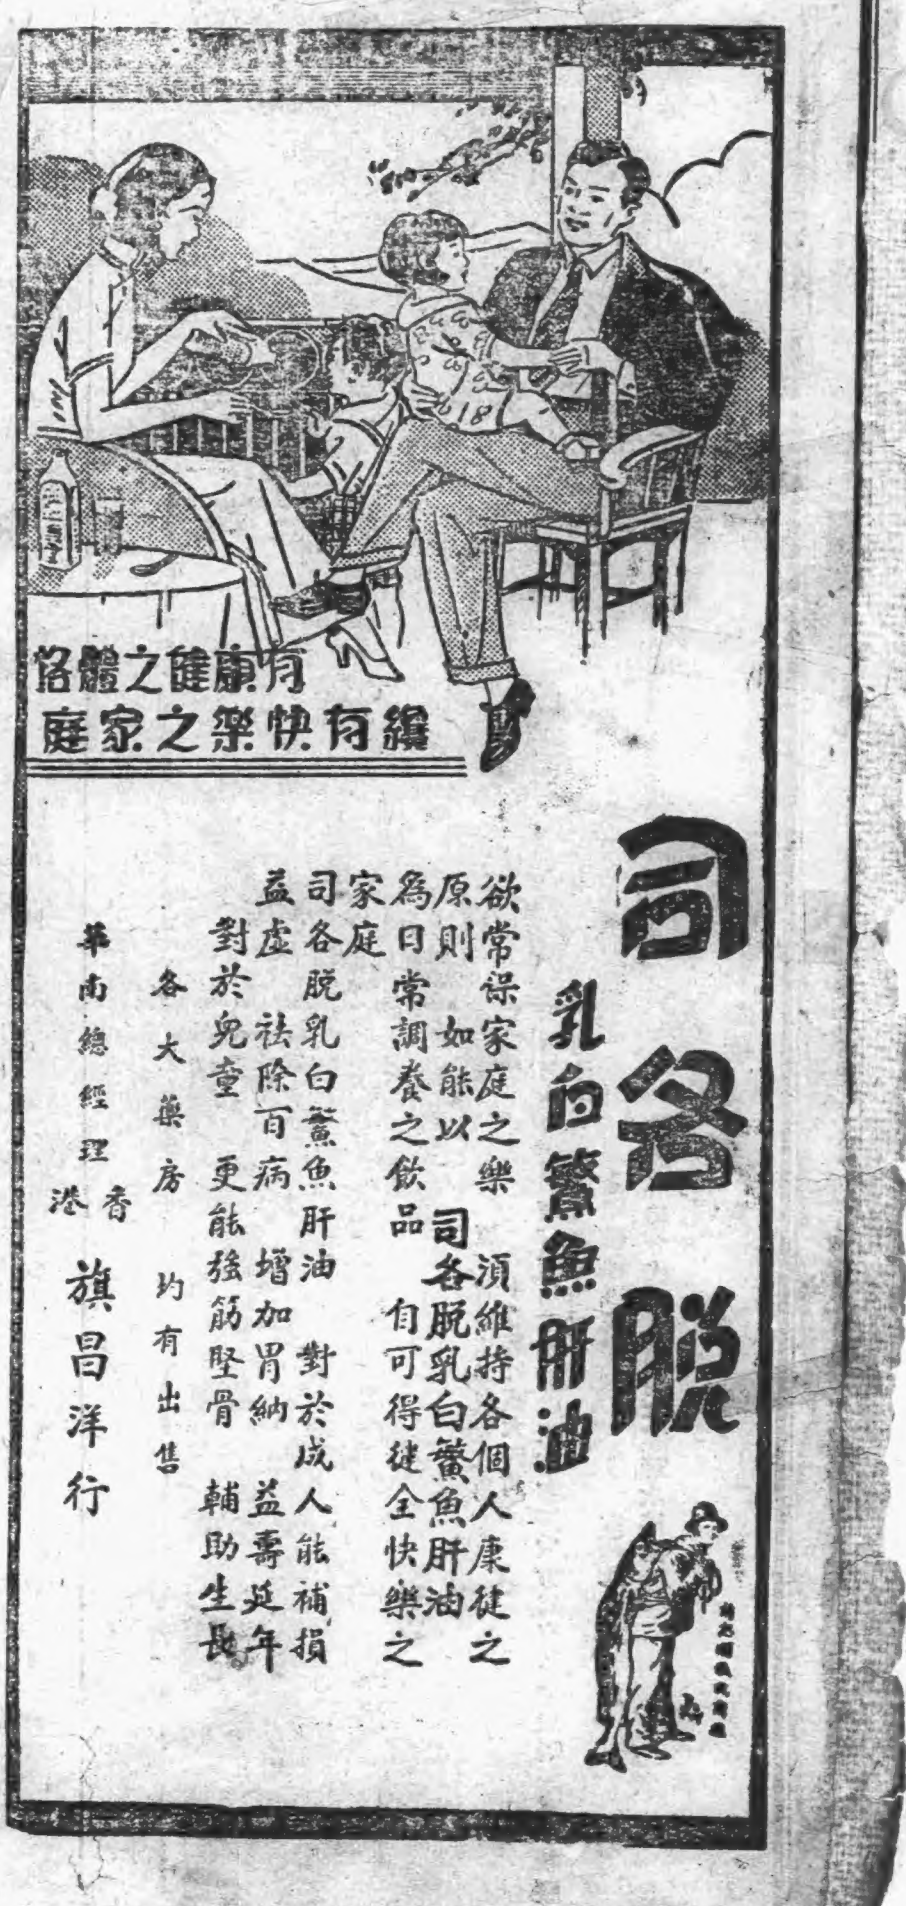 有康健之體格
纔有快樂之家庭
司各脫
乳白鰵魚肝油
欲常保家庭之樂 須維持各個人康健之
原則 如能以 司各脫乳白鰵魚肝油
為日常調養之飲品 自可得健全快樂之
家庭
司各脫乳白鰵魚肝油 對於成人能補損
益虛 祛除百病 增加胃納 益壽延年
對於兒童 更能強筋堅骨 輔助生長
各大藥房 均有出售
華南總經理 香港 旗昌洋行